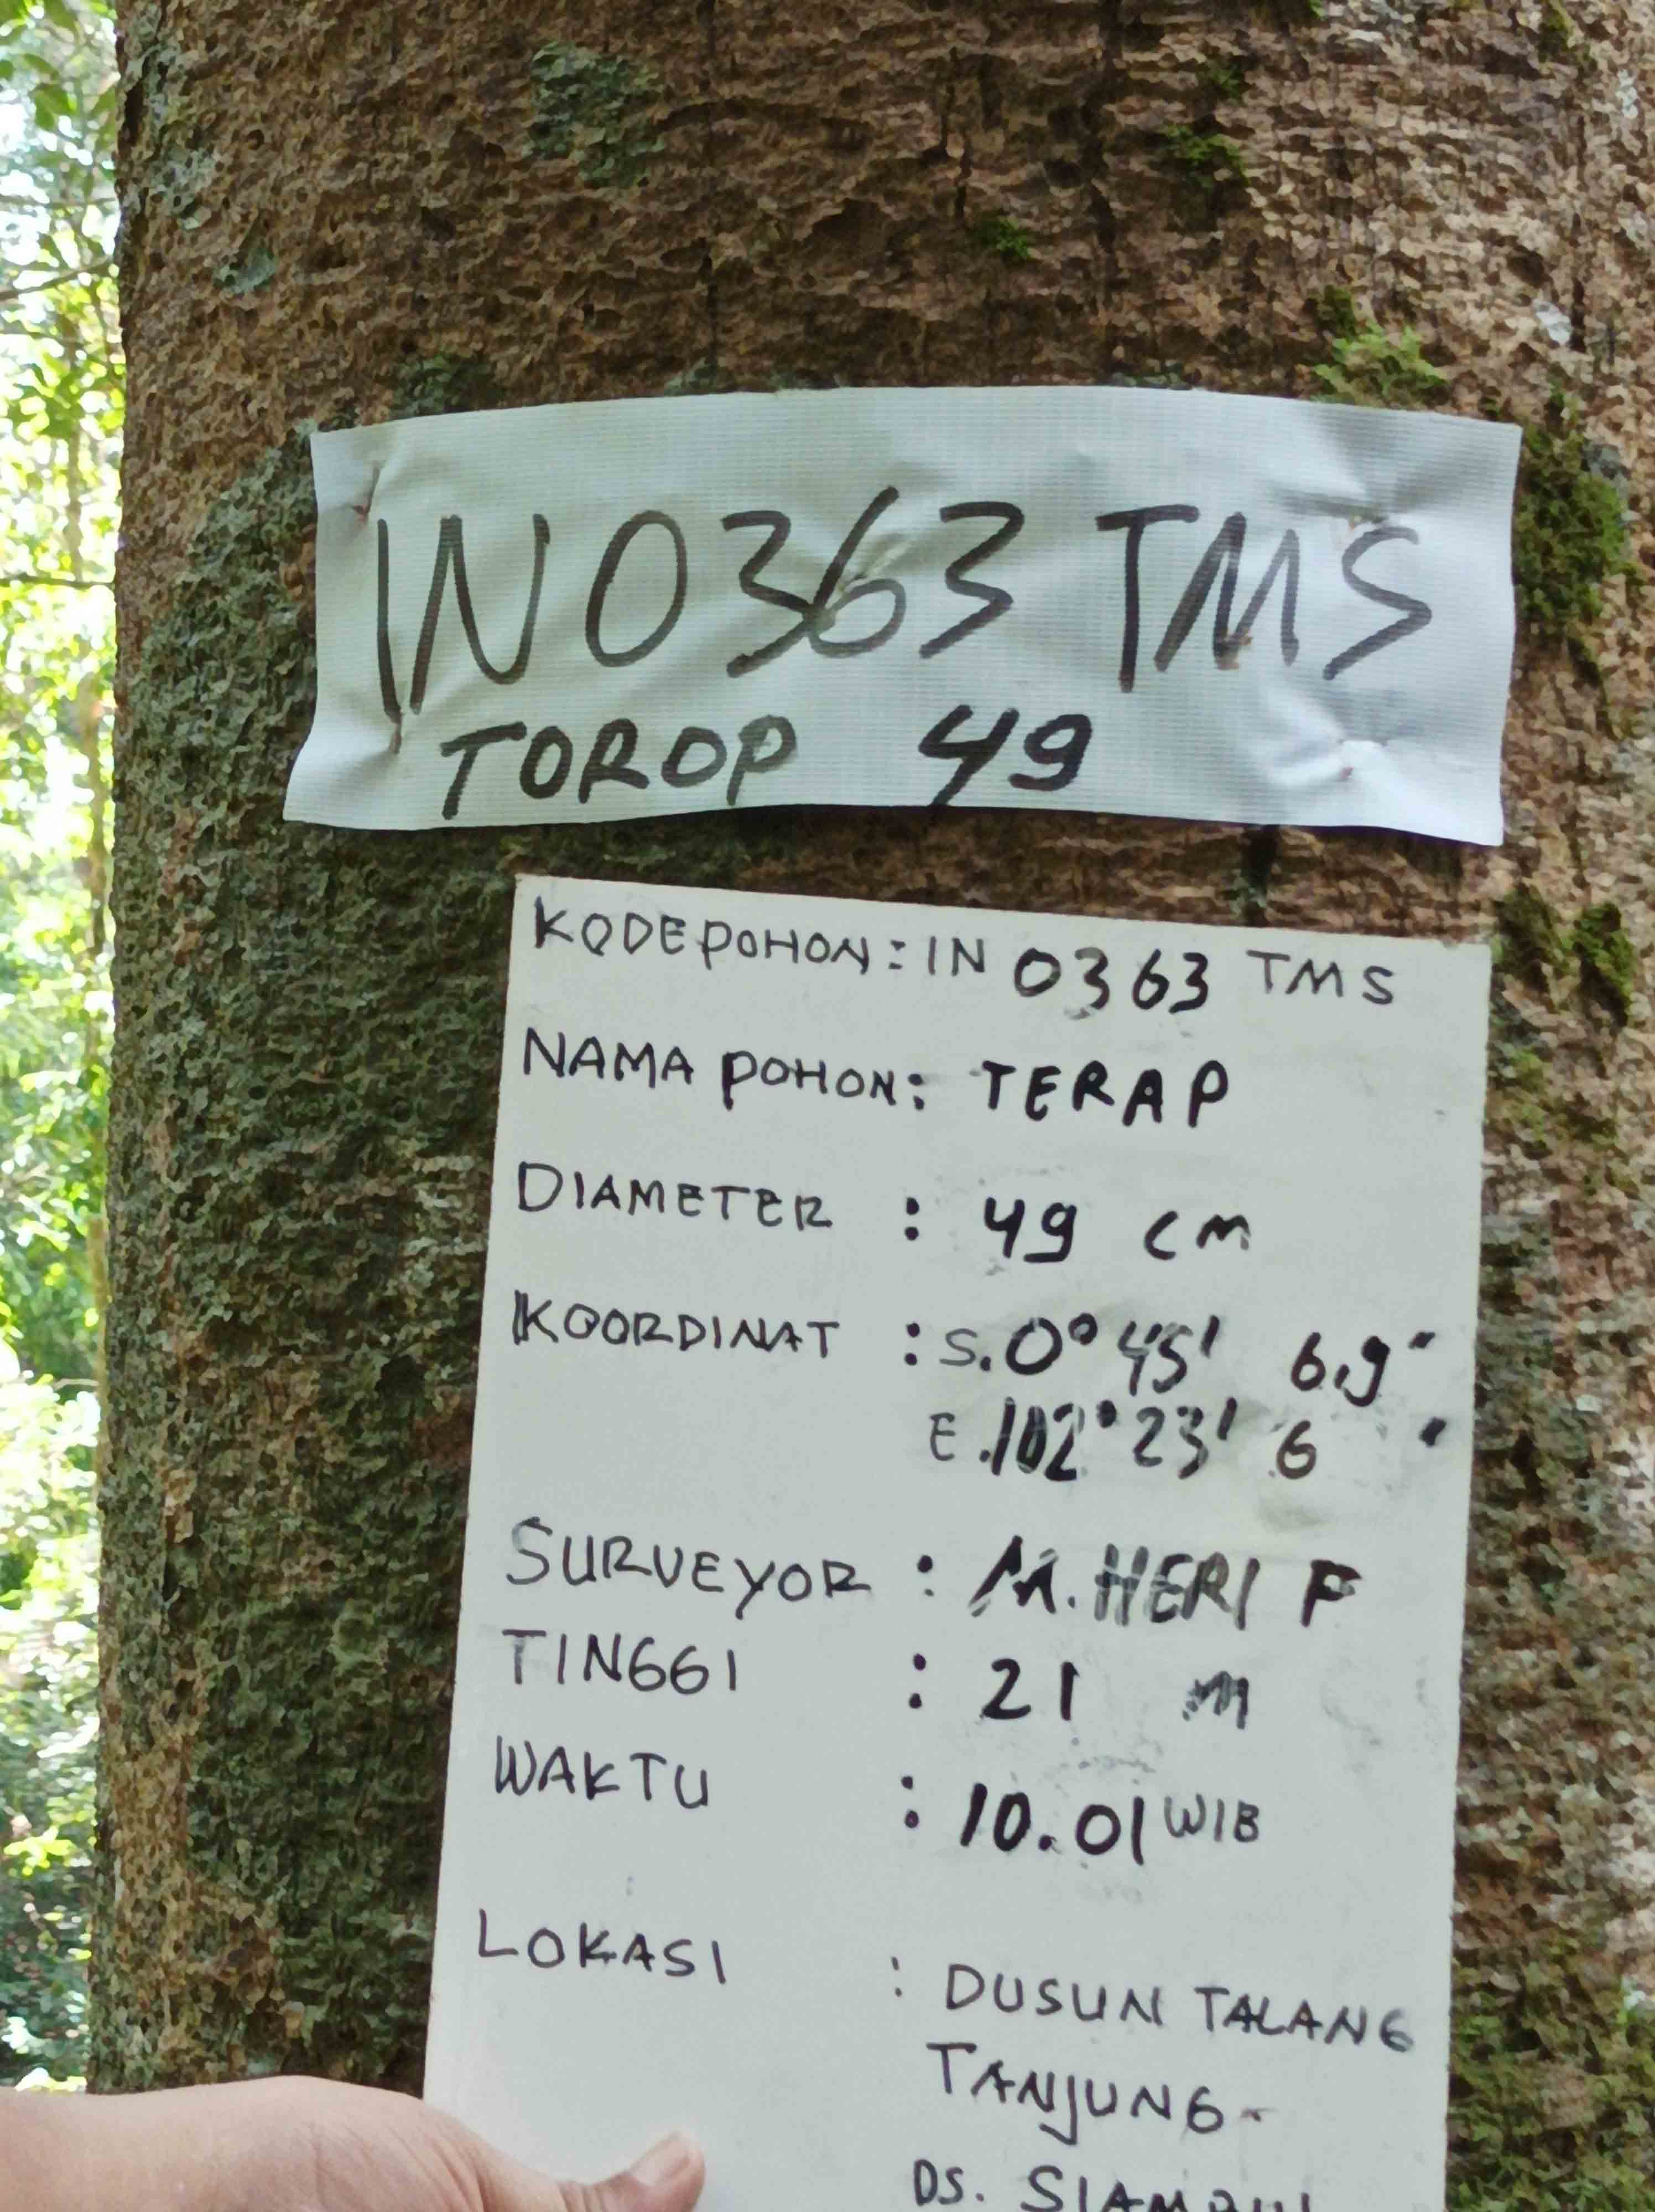 IN0363 TMS
TOROP 49
KODE POHON : IN 0363 TMS
NAMA POHON : TERAP
DIAMETER : 49 cm
KOORDINAT : S.0° 45' 6,9"
E.102° 23' 6 "
SURVEYOR : M.HERI F
TINGGI : 21 m
WAKTU : 10.01 WIB
LOKASI : DUSUN TALANG
TANJUNG-
DS.